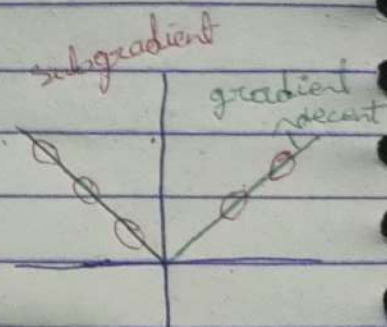 subgradient
gradient
decent